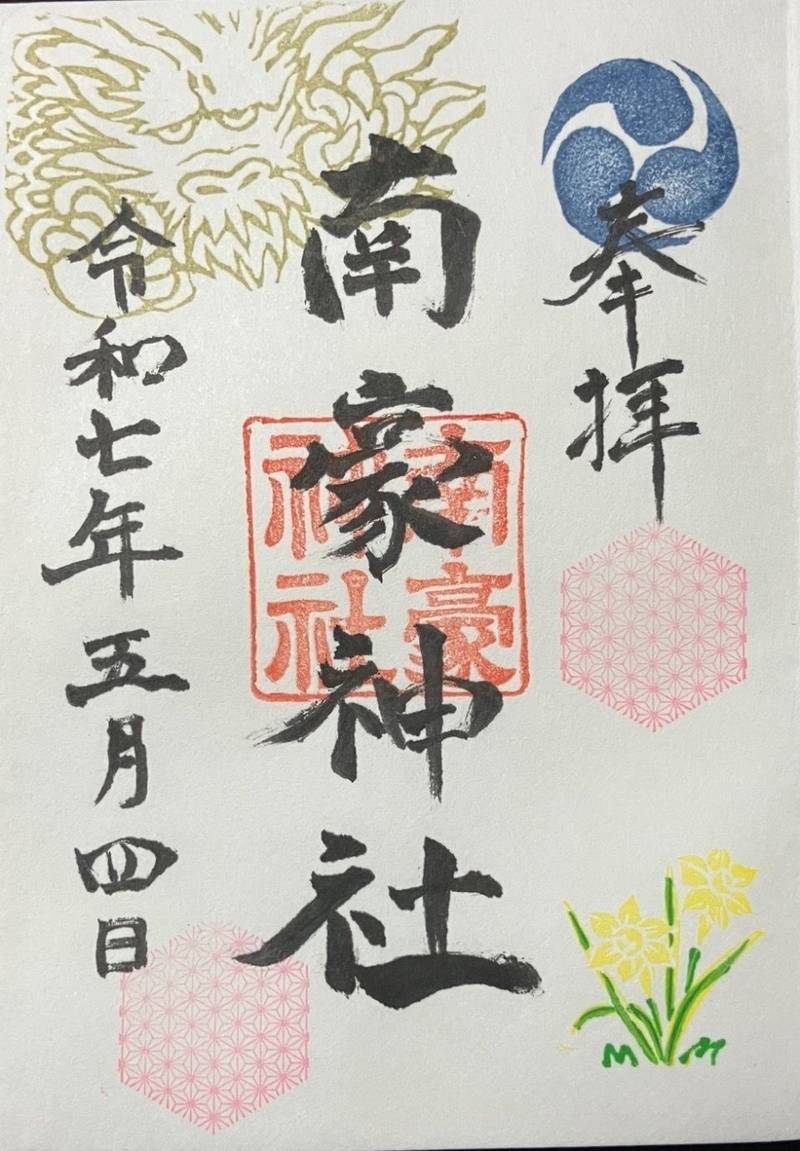 奉拝
南豪神社
南豪
神社
令和七年五月四日